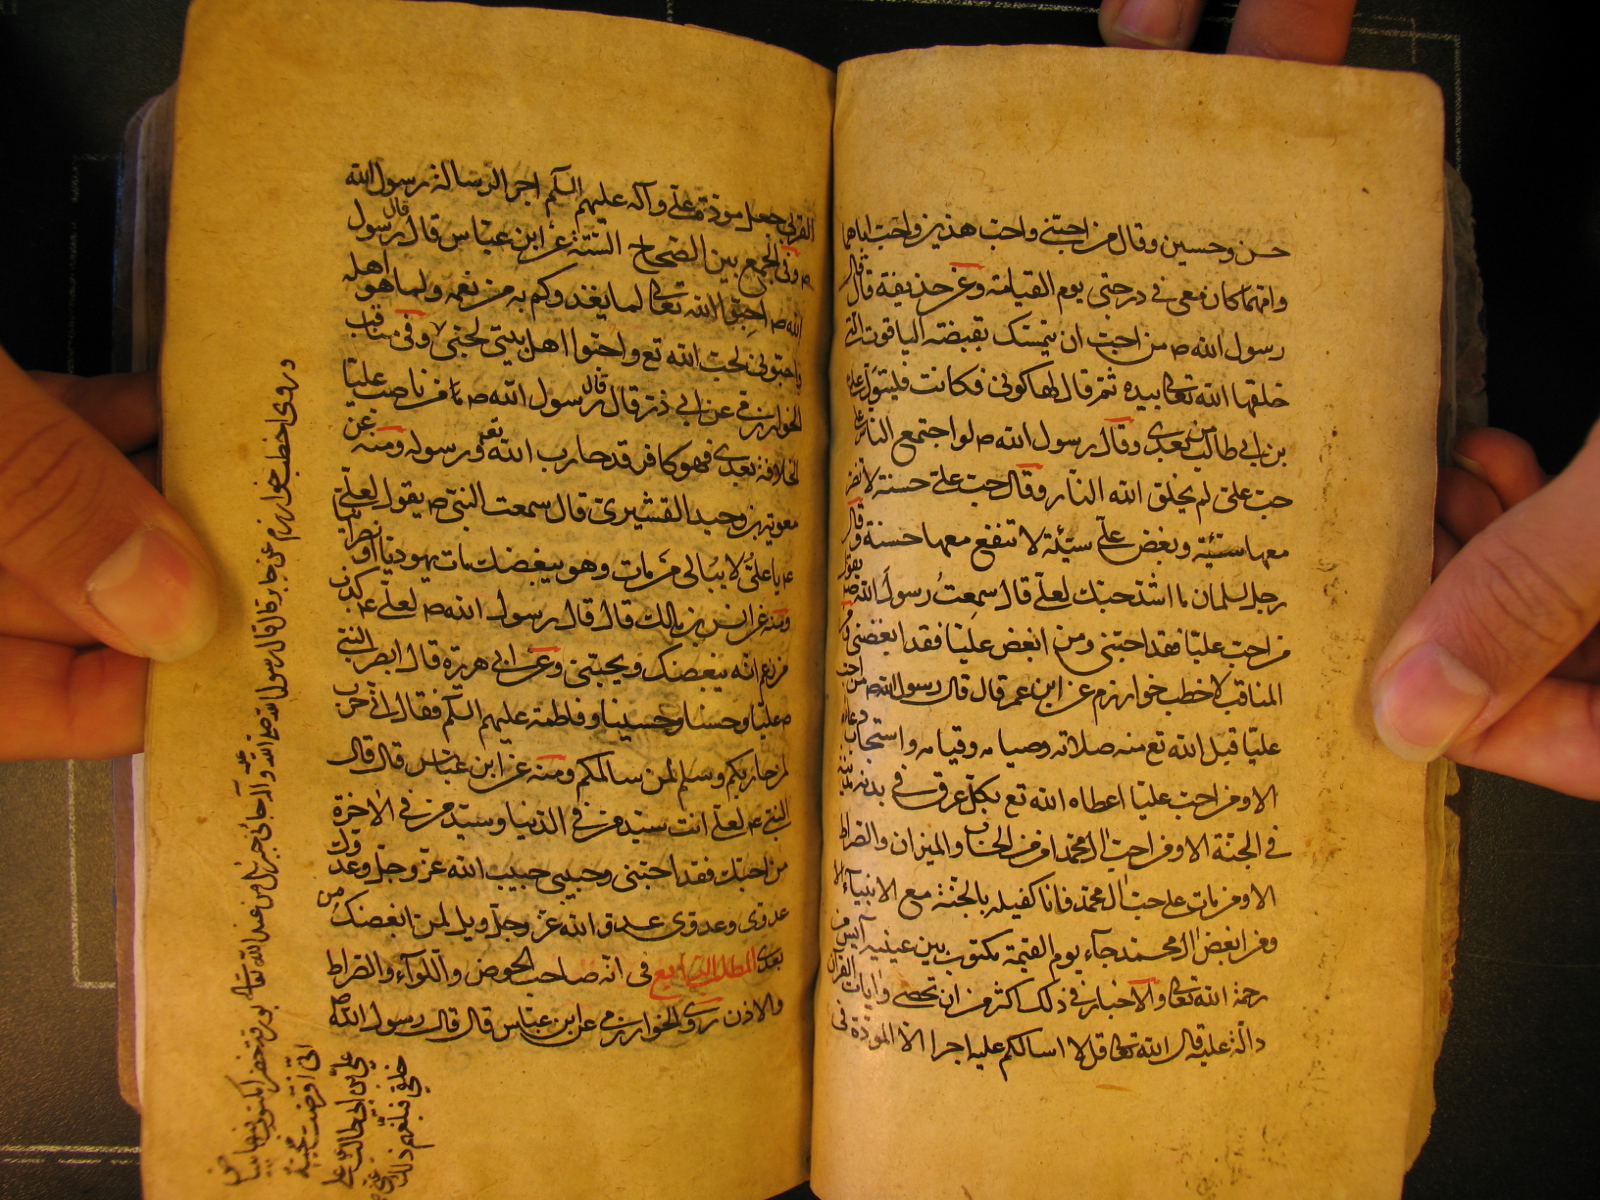 حسن وحسين وقال من احبني واحب هذين واحب اباهما
وامهما كان معي في درجتي يوم القيامة وعن حذيفة قال قال
رسول الله ص من احب ان يتمسك بقبضة الياقوت التي
خلقها الله تعالى بيده ثم قال لها كوني فكانت فليتول علي
بن ابي طالب من بعدي وقال رسول الله ص لو اجتمع الناس على
حب علي لم يخلق الله النار وقال حب علي حسنة لا تضر
معها سيئة وبغض علي سيئة لا تنفع معها حسنة وقال
رجل لسلمان ما اشد حبك لعلي قال سمعت رسول الله ص يقول
من احب عليا فقد احبني ومن ابغض عليا فقد ابغضني وفي
المناقب لاخطب خوارزم عن ابن عمر قال قال رسول الله ص من احب
عليا قبل الله تع منه صلاته وصيامه وقيامه واستجاب دعاءه
الا ومن احب عليا اعطاه الله تع بكل عرق في بدنه مدينة
في الجنة الا ومن احب ال محمد امن من الحساب والميزان والصراط
الا ومن مات على حب ال محمد فانا كفيله بالجنة مع الانبياء الا
ومن ابغض ال محمد جاء يوم القيمة مكتوب بين عينيه آيس من
رحمة الله تعالى والاخبار في ذلك اكثر من ان تحصى وايات القران
دالة عليه قال الله تعالى قل لا اسالكم عليه اجرا الا المودة في
القربى جعل مودة علي وآله عليهم السلم اجر الرسالة رسول الله
ص وفي الجمع بين الصحاح الستة عن ابن عباس قال قال رسول
الله ص احبوا الله تعالى لما يغذوكم به من نعمه ولما هو اهله
واحبوني لحب الله تع واحبوا اهل بيتي لحبي وفي مناقب
الخوارزمي عن ابي ذر قال قال رسول الله ص من ناصب عليا
الخلافة بعدي فهو كافر قد حارب الله تع ورسوله ومنه عن
معوية بن وحيد القشيري قال سمعت النبي ص يقول لعلي
ع يا علي لا يبالي من مات وهو يبغضك مات يهوديا او نصرانيا
ومنه عن انس بن مالك قال قال رسول الله ص لعلي ع كذب
من زعم انه يبغضك ويحبني وعن ابي هريرة قال ابصر النبي
ص عليا وحسنا وحسينا وفاطمة عليهم السلم فقال انا حرب
لمن حاربكم وسلم لمن سالمكم ومنه عن ابن عباس قال قال
النبي ع لعلي انت سيد من في الدنيا وسيد من في الاخرة
من احبك فقد احبني وحبيبي حبيب الله عز وجل وعدوك
عدوي وعدوي عدو الله عز وجل ويل لمن ابغضك من
بعدي المطلب الرابع في انه صاحب الحوض واللواء والصراط
والاذن روى الخوارزمي عن ابن عباس قال قال رسول الله ص
وروى اخطب خوارزم عن جابر قال قال رسول الله صلى الله عليه وآله جاءني جبرئيل من عند الله تعالى بورقة خضراء مكتوب فيها ببياض
اني افترضت محبة
علي بن ابي طالب على
خلقي فبلغهم ذلك عني